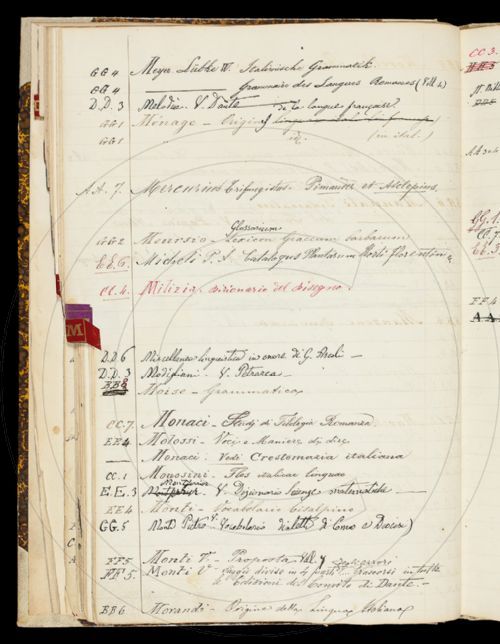 GG 4 Meyer Lübke W. Italienische Grammatik.
GG 4 Grammaire des Langues Romanes (Voll 2)
D.D. 3 Melodia. V. Dante
de la langue française
GG 1 Ménage - Origini (in ital.)
GG 1 id.
A.A. 7. Mercurius Trismegistus. Pimander et Asclepius.
Glossarium
GG 2 Meursio Lexicon Graecum barbarum
EE. 6. Micheli P. A. Catalogus Plantarum Horti florentini
CC. 4. Milizia. dizionario del disegno.
M
D.D. 6 Miscellanea linguistica in onore di G. Ascoli -
D.D. 3 Modigliani. V. Petrarca -
BB 8 Moise - Grammatica
CC. 7. Monaci - Studj di Filologia Romanza
EE 4 Molossi - Voci e Maniere di dire
— Monaci. Vedi Crestomazia italiana
CC. 1 Monosini. Flos italicae linguae
E.E. 3 V. Dizionario Scienze matematiche -
EE 4 Monti - Vocabolario Cisalpino
GG. 5 Monti Pietro - Vocabolario dialetti di Como e
FF 5 Monti V. - Proposta Vol. 7
FF 5. Monti V. Saggio diviso in 4 parti
le edizioni del Convito di Dante -
BB 6 Morandi - Origine della Lingua Italiana
CC 3.